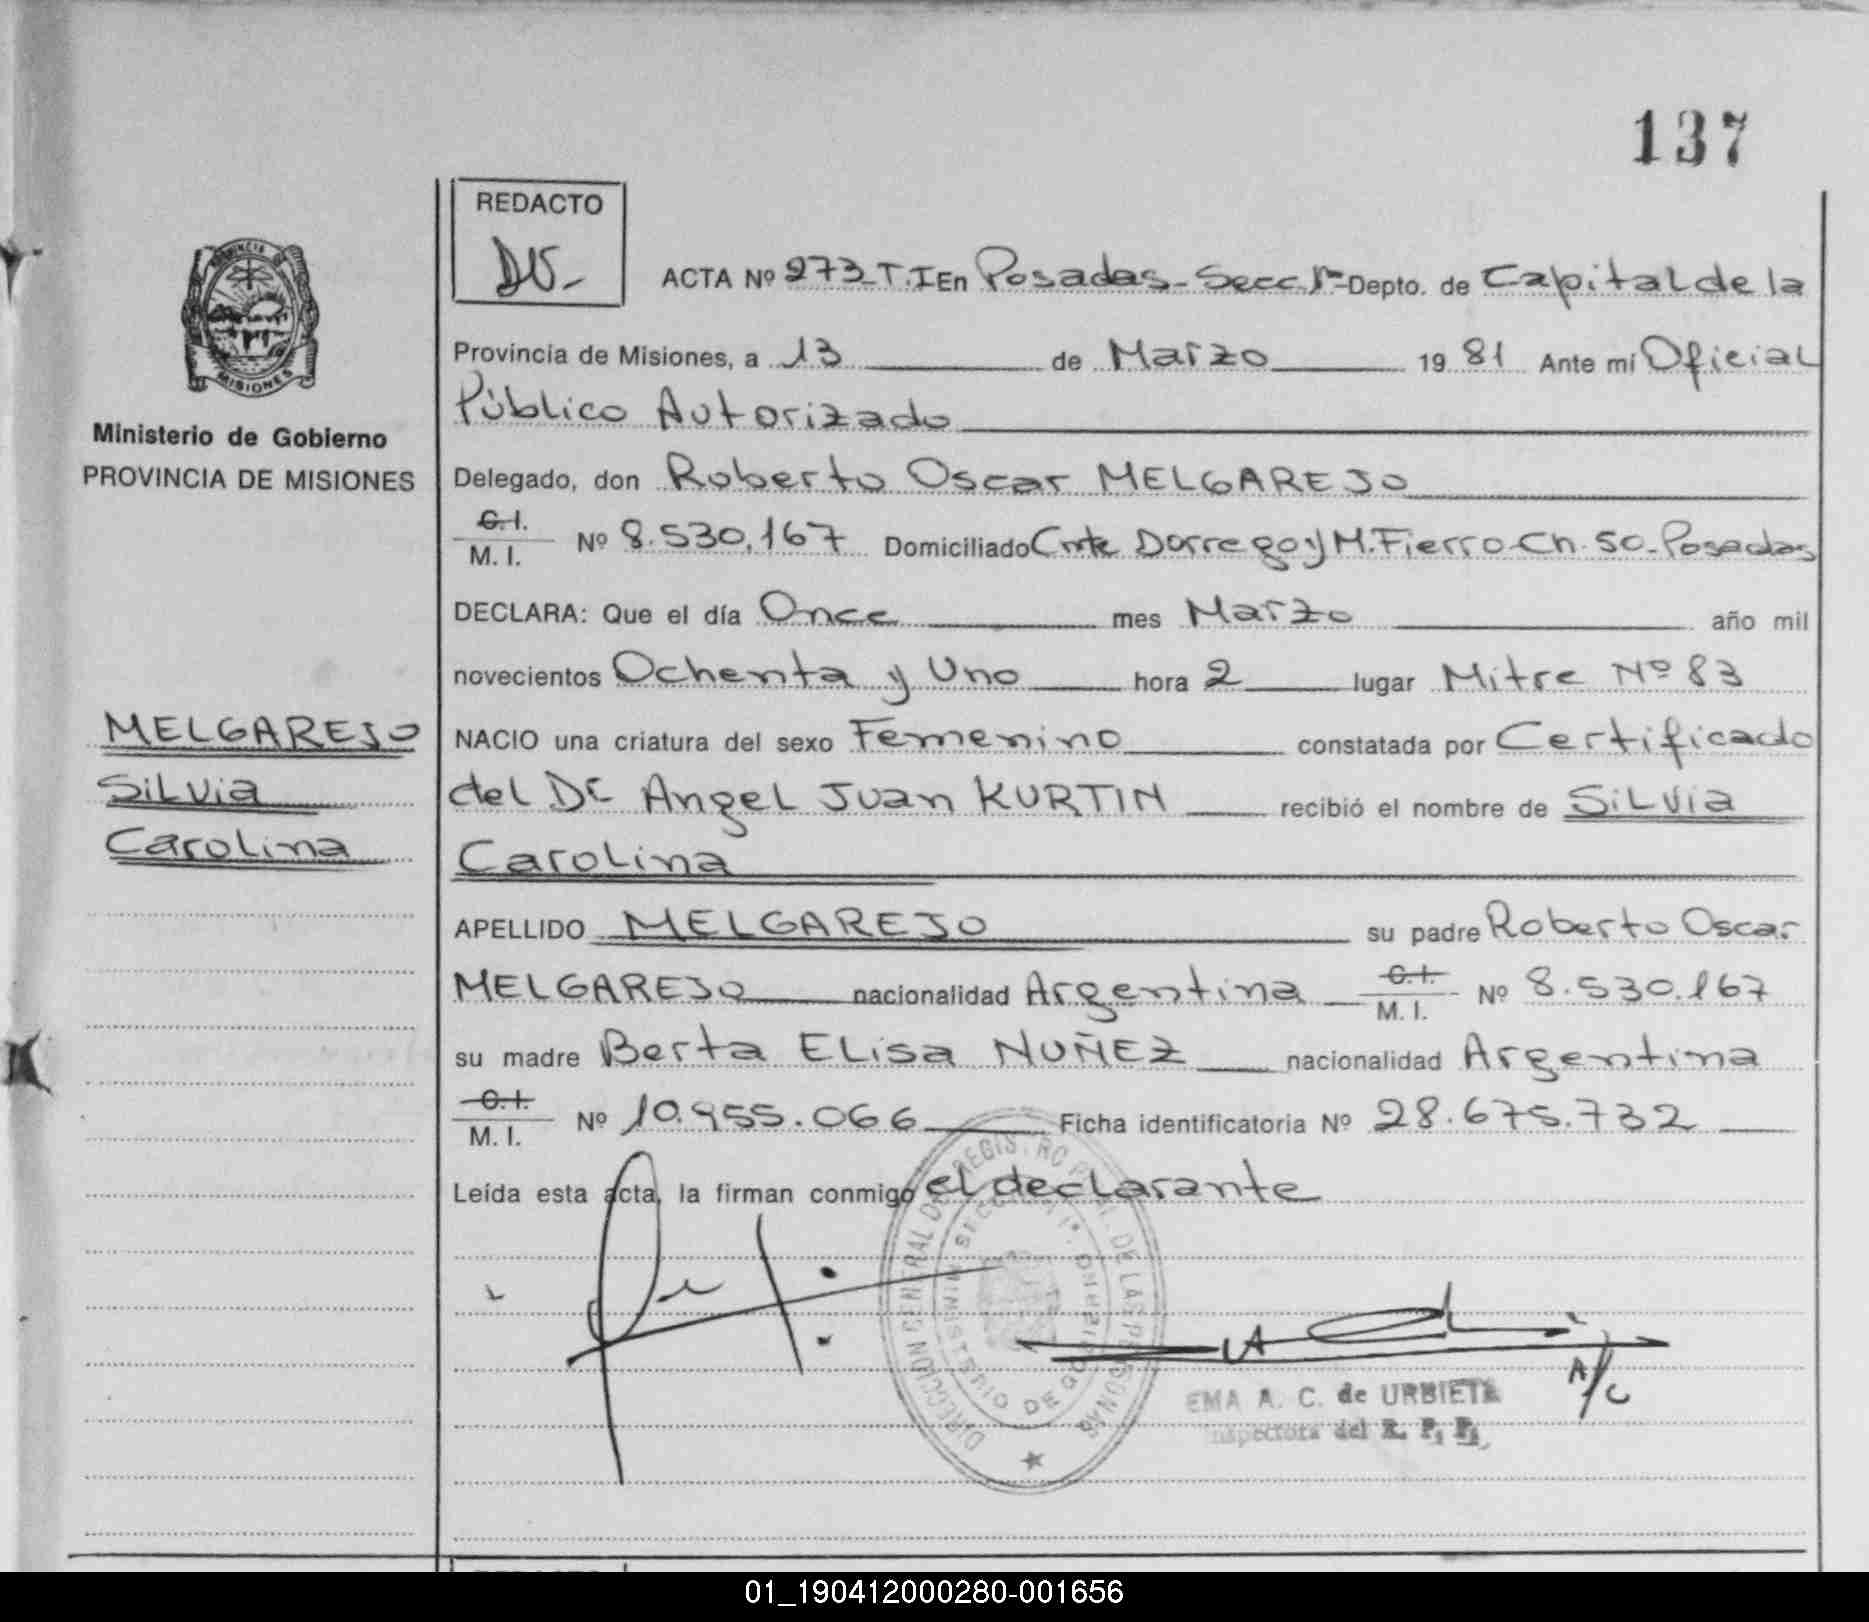 137
REDACTO
ACTA Nº 273-T.I En Posadas-Secc.1ª-Depto. de Capital de la
Provincia de Misiones, a 13 de Marzo 1981 Ante mí Oficial
Público Autorizado
Delegado, don Roberto Oscar MELGAREJO
C.I.
M.I. Nº 8.530.167 Domiciliado Cnte Dorrego y M.Fierro-Ch.50-Posadas
DECLARA: Que el día Once mes Marzo año mil
novecientos Ochenta y Uno hora 2 lugar Mitre Nº 83
NACIO una criatura del sexo Femenino constatada por Certificado
del Dr Angel Juan KURTIN recibió el nombre de Silvia
Carolina
APELLIDO MELGAREJO su padre Roberto Oscar
MELGAREJO nacionalidad Argentina C.I. M.I. Nº 8.530.167
su madre Berta Elisa NUÑEZ nacionalidad Argentina
C.I.
M.I. Nº 10.955.066 Ficha identificatoria Nº 28.675.732
Leída esta acta, la firman conmigo el declarante
PROVINCIA
MISIONES
Ministerio de Gobierno
PROVINCIA DE MISIONES
MELGAREJO
Silvia
Carolina
DIRECCION GENERAL DE REGISTRO PCIAL. DE LAS PERSONAS
MINISTERIO DE GOBIERNO
SECCION 1ª
A/C
EMA A. C. de URBIETA
Inspectora del R. P. P.
01_190412000280-001656